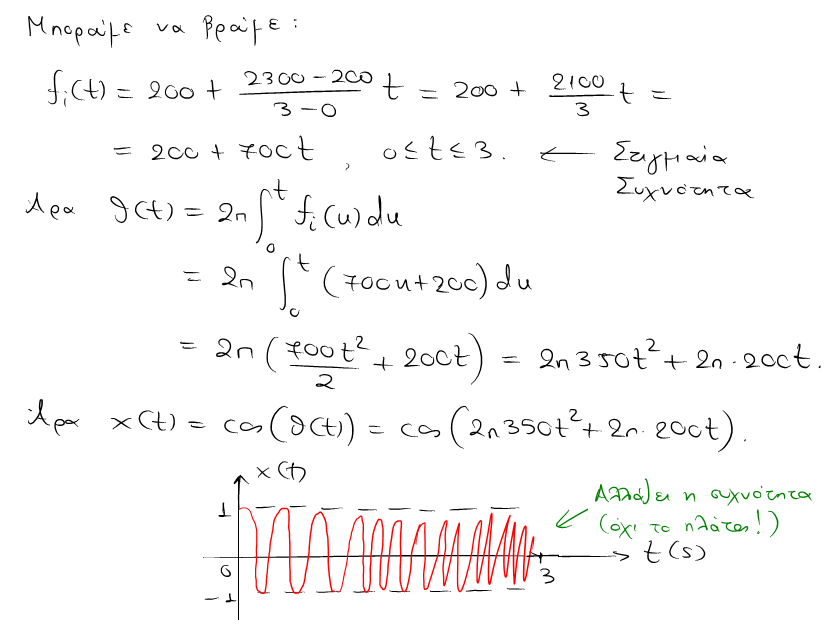 Μπορούμε να βρούμε:
f_i(t) = 200 + \frac{2300-200}{3-0} t = 200 + \frac{2100}{3} t =
= 200 + 700t , 0 ≤ t ≤ 3. ← Στιγμιαία
Συχνότητα
Άρα θ(t) = 2π ∫_0^t f_i(u) du
= 2π ∫_0^t (700u+200) du
= 2π ( \frac{700t^2}{2} + 200t ) = 2π350t^2 + 2π·200t.
Άρα x(t) = cos(θ(t)) = cos(2π350t^2 + 2π·200t).
x(t)
1
Αλλάζει η συχνότητα
(όχι το πλάτος!)
0
3
t(s)
-1